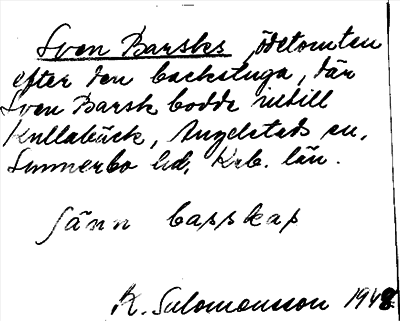 Sven Barsks ödetomten
efter den backstuga, där
Sven Barsk bodde intill
Kullabäck, Angelstads sn,
Sunnerbo hd, Krb. län.
Jänn basskap
K. Salomonsson 1948